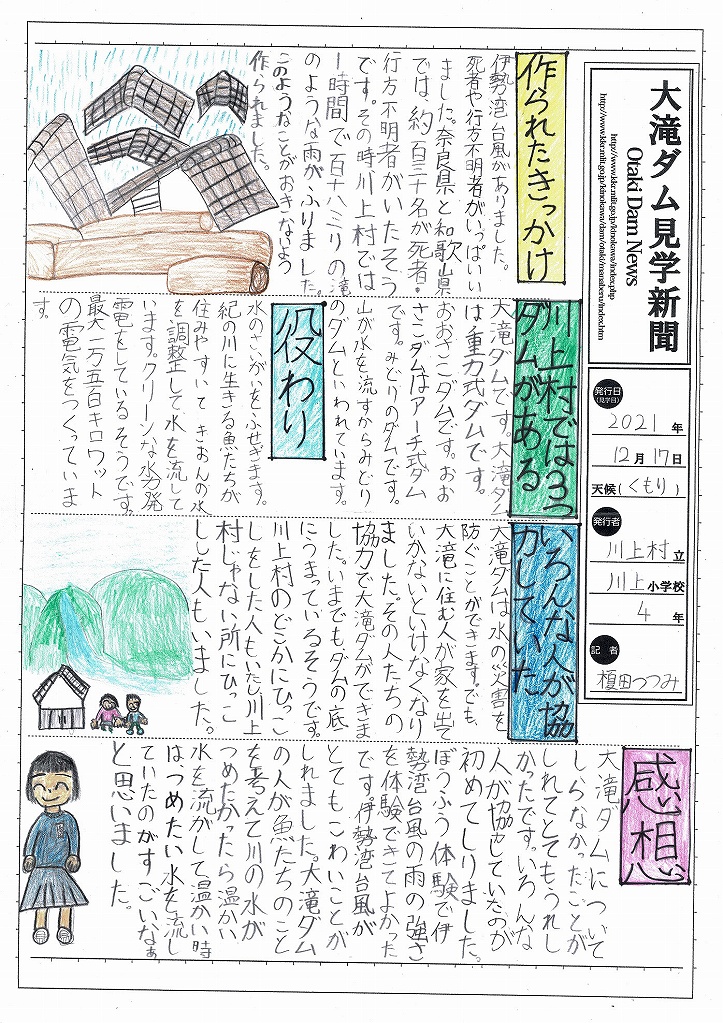 大滝ダム見学新聞
Otaki Dam News
発行日
(見学日)
2021年
12月17日
天候(くもり)
発行者
川上村立
川上小学校
4年
記者
榎田つつみ
作られたきっかけ
伊勢湾台風がありました。
死者や行方不明者がいっぱいい
ました。奈良県と和歌山県
では、約百三十名が死者・
行方不明者がいたそう
です。その時川上村では
一時間で百十八ミリの滝
のような雨がふりました。
このようなことがおきないよう
作られました。
川上村では3つ
ダムがある
大滝ダムです。大滝ダム
は重力式ダムです。
おおさこダムです。おお
さこダムはアーチ式ダム
です。みどりのダムです。
山が水を流すからみどり
のダムといわれています。
役わり
水のさいがいをふせぎます。
紀の川に生きる魚たちが
住みやすいてきおんの水
を調整して水を流して
います。クリーンな水力発
電をしているそうです。
最大一万五百キロワット
の電気をつくっていま
す。
いろんな人が協
力していた
大滝ダムは水の災害を
防ぐことができます。でも、
大滝に住む人が家を出て
いかないといけなくなり
ました。その人たちの
協力で大滝ダムができま
した。いまでもダムの底
にうまっているそうです。
川上村のどこかにひっこ
しをした人もいたし川上
村じゃない所にひっこ
しした人もいました。
感想
大滝ダムについて
しらなかったことが
しれてとてもうれし
かったです。いろんな
人が協力していたのが
初めてしりました。
ぼうふう体験で伊
勢湾台風の雨の強さ
を体験できてよかった
です。伊勢湾台風が
とてもこわいことが
しれました。大滝ダム
の人が魚たちのこと
を考えて川の水が
つめたかったら温かい
水を流がして温かい時
はつめたい水を流し
ていたのがすごいなぁ
と思いました。